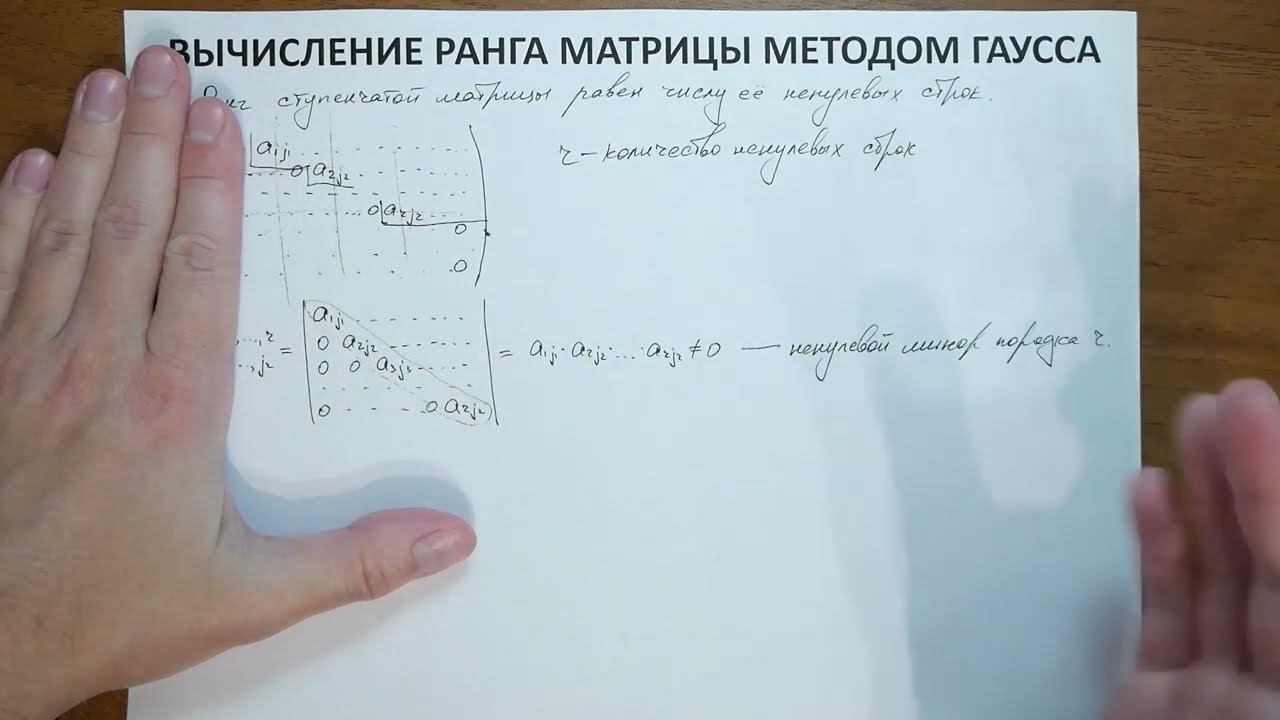 ВЫЧИСЛЕНИЕ РАНГА МАТРИЦЫ МЕТОДОМ ГАУССА
ступенчатой матрицы равен числу её ненулевых строк.
r – количество ненулевых строк
a₁ⱼ₁
0 a₂ⱼ₂
0 aᵣⱼᵣ
0
0
a₁ⱼ₁
0 a₂ⱼ₂
0 0 a₃ⱼ₃
0 0 aᵣⱼᵣ
= a₁ⱼ₁ · a₂ⱼ₂ · … · aᵣⱼᵣ ≠ 0 — ненулевой минор порядка r.